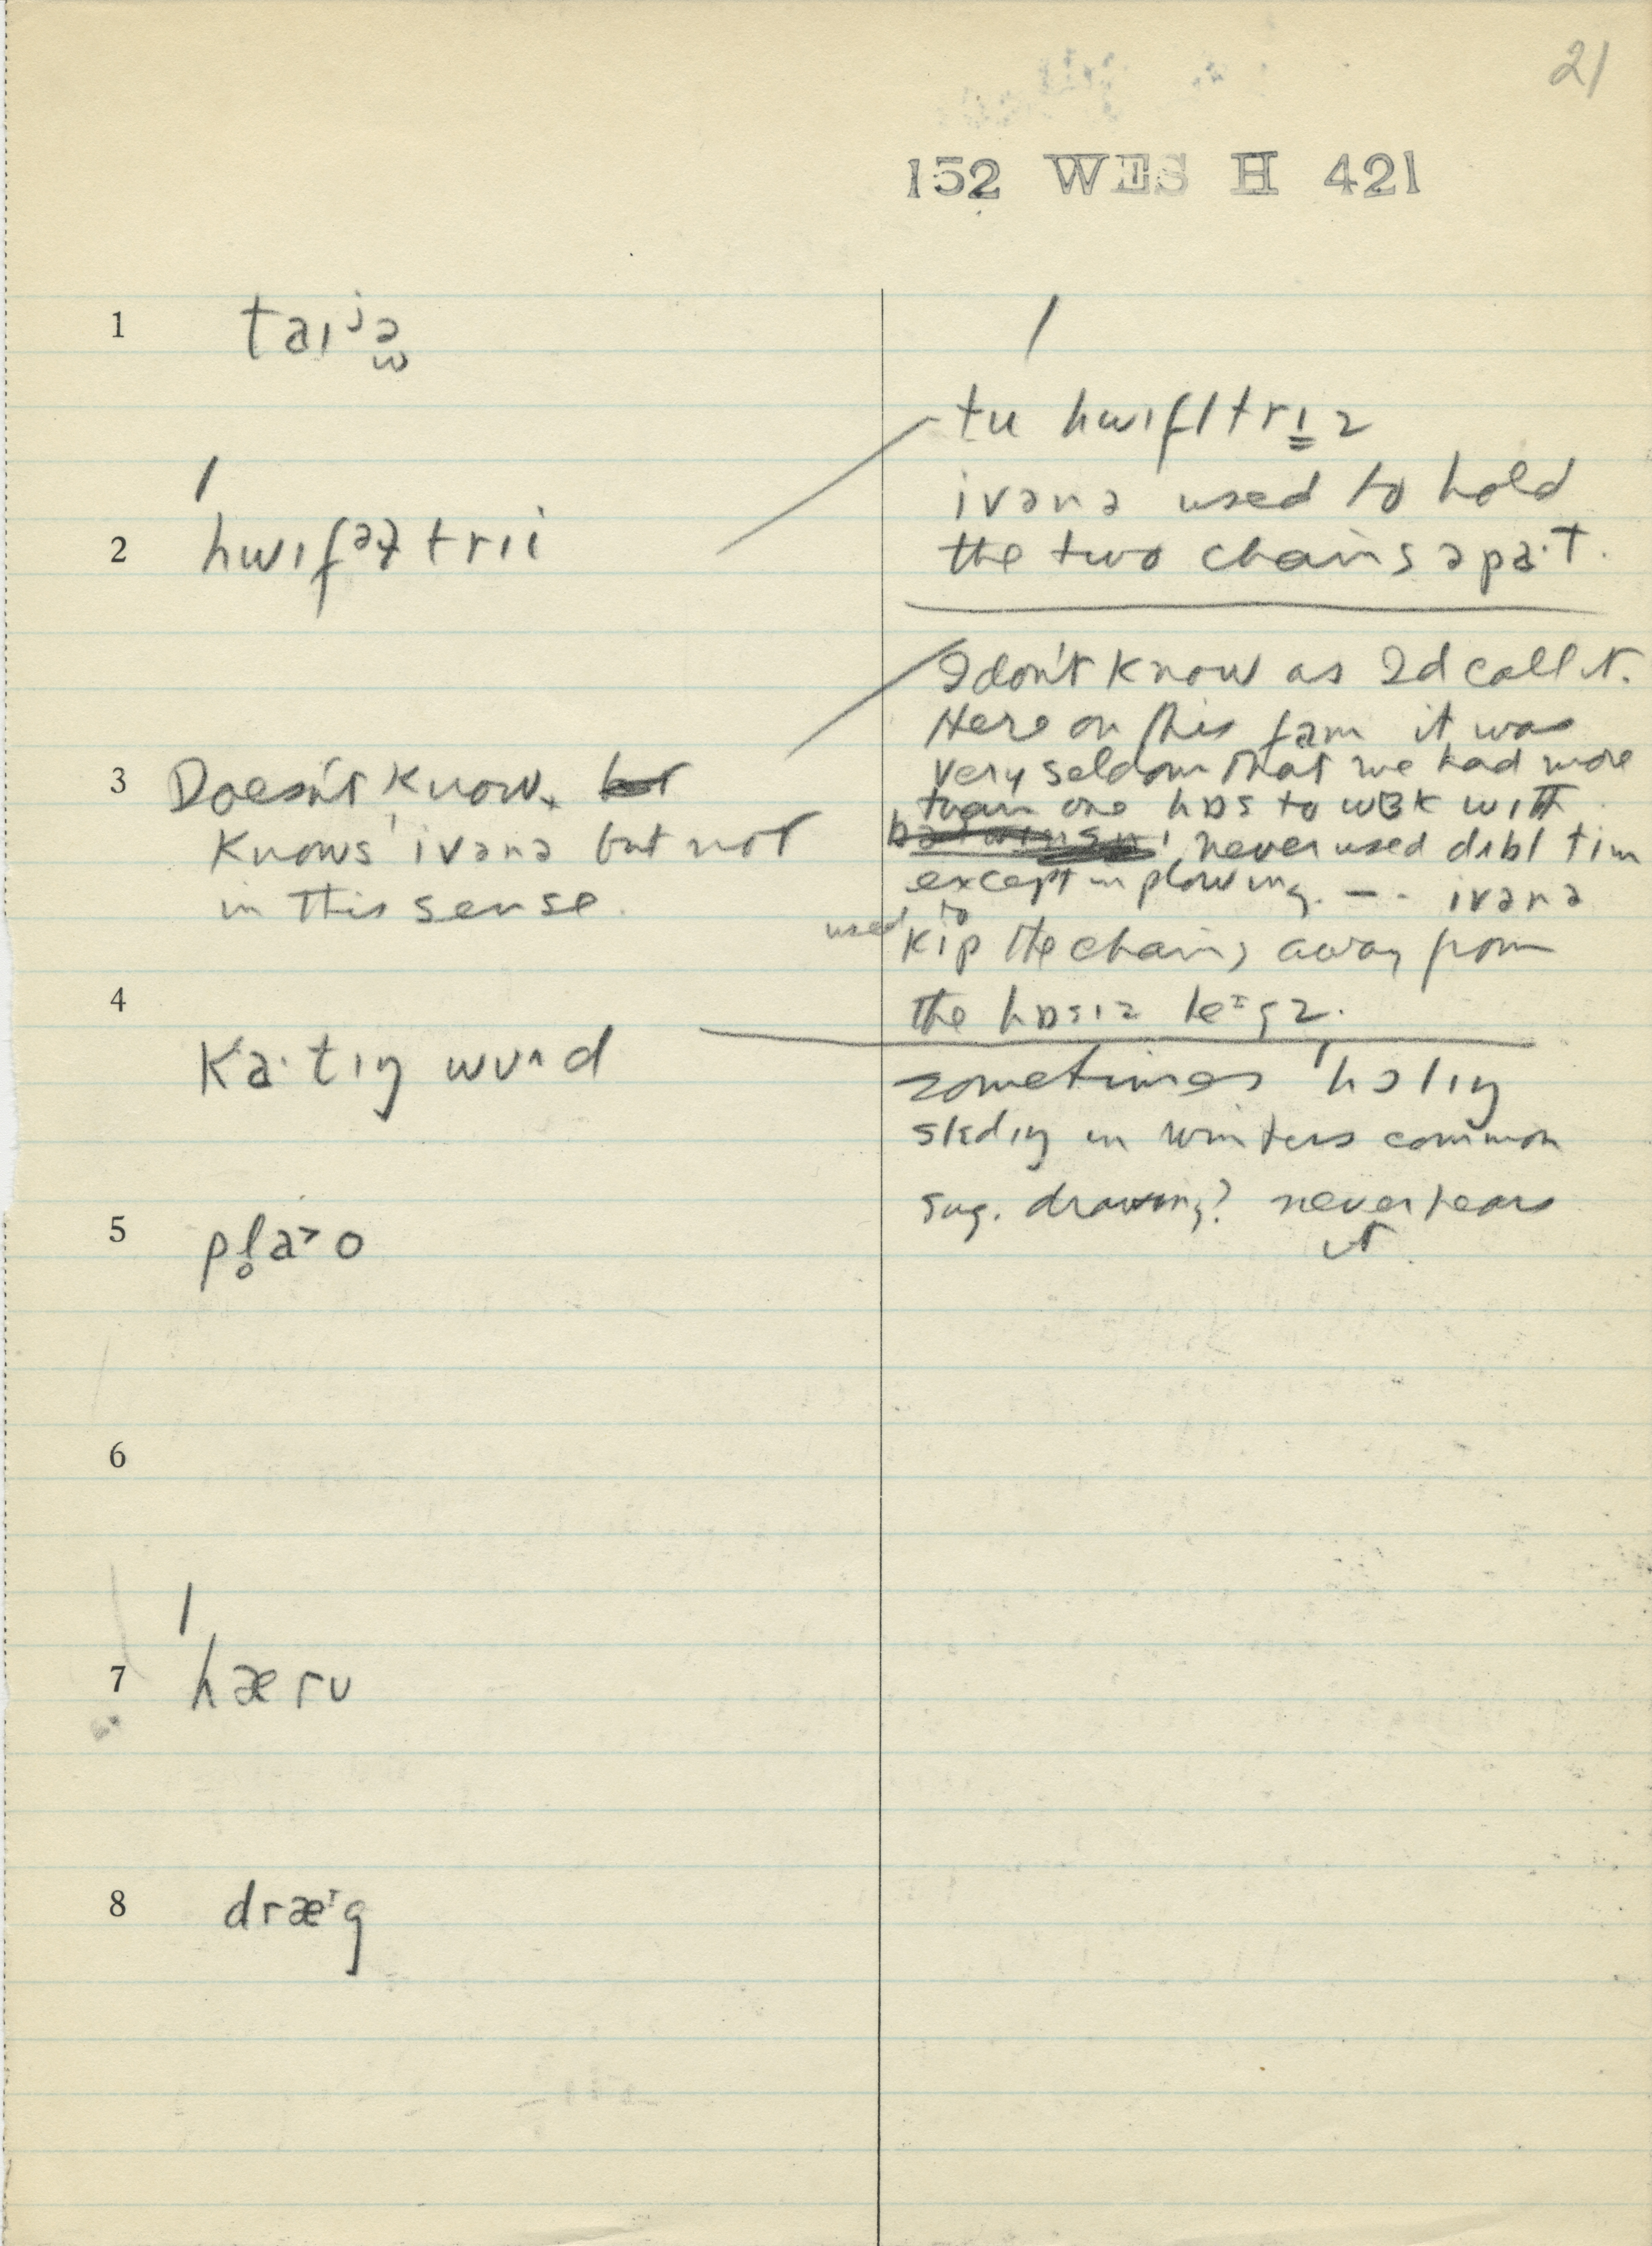 21
152 WES H 421
1 taɪʲə̯
2 ˈhwɪfəɫtrɪi
3 Doesn't know.
Knows ivənə but not
in this sense.
4 Ka·tɪŋ wuʌd
5 pl̥aᵊo
6
7 ˈhæru
8 dræᶦg
tu ˈhwɪfltrɪz
ivənə used to hold
the two chains apa·t.
I don't know as I'd call it.
Here on this fam it was
very seldom that we had more
than one hɒs to wɜk with
never used dʌbl tim
except in plowing. -- ivənə
used to kip the chains away from
the hɒsɪz leᶦgz.
sometimes ˈhɔlɪŋ
slɛdɪŋ in winters common
sug. drawing? never hears
it